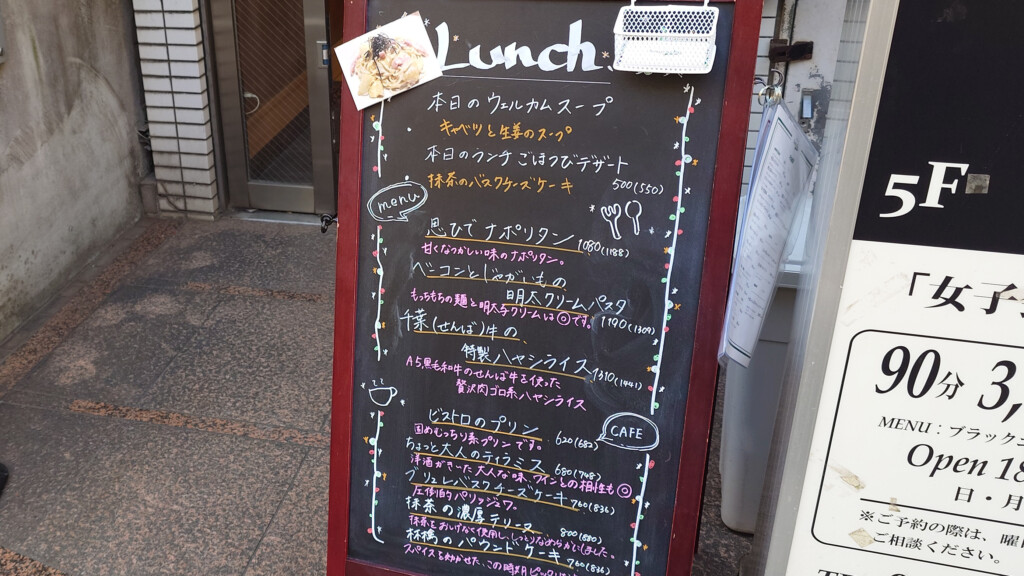 Lunch.
本日のウェルカムスープ
キャベツと生姜のスープ
本日のランチごほうびデザート
抹茶のバスクチーズケーキ 500(550)
menu
思ひでナポリタン 1080(1188)
甘くなつかしい味のナポリタン。
ベーコンとじゃがいもの
明太クリームパスタ
もっちもちの麺と明太子クリームは◎です。 1190(1309)
千葉(せんば)牛の、
特製ハヤシライス 1310(1441)
A5黒毛和牛のせんば牛を使った
贅沢肉ゴロ系ハヤシライス
CAFE
ビストロのプリン 620(682)
固めむっちり系プリンです。
ちょっと大人のティラミス 680(748)
洋酒がきいた大人な味、ワインとの相性も◎
ブリュレバスクチーズケーキ 760(836)
圧倒的パリッジュワ。
抹茶の濃厚テリーヌ 800(880)
抹茶をおしげなく使用し、しっとりなめらかにしました。
林檎のパウンドケーキ 760(836)
スパイスをきかせた、この時期
5F
「女子
90分 3,
MENU：ブラック
Open 18
日・月
※ご予約の際は、曜
ご相談ください。